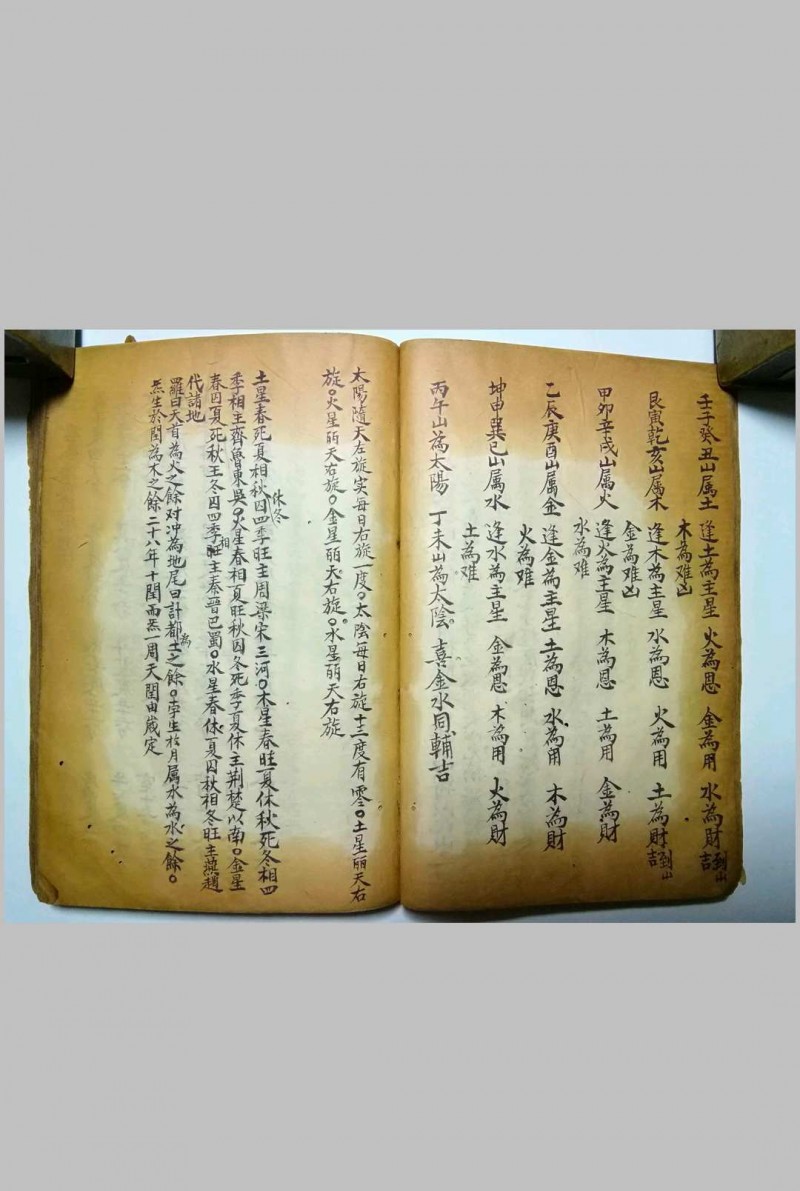 壬子癸丑山属土　逢土為主星　火為恩　金為用　水為財吉到山
木為难凶
艮寅乾亥山属木　逢木為主星　水為恩　火為用　土為財吉到山
金為难凶
甲卯辛戌山属火　逢火為主星　木為恩　土為用　金為財
水為难
乙辰庚酉山属金　逢金為主星　土為恩　水為用　木為財
火為难
坤申巽巳山属水　逢水為主星　金為恩　木為用　火為財
土為难
丙午山為太陽　丁未山為太陰。喜金水同輔吉
太陽隨天左旋实每日右旋一度。太陰每日右旋十三度有零。土星丽天右
旋。火星丽天右旋。金星丽天右旋。水星丽天右旋
土星春死夏相秋囚四季旺主周梁宋三河。木星春旺夏休秋死冬相四
休冬
季相主齊魯東吳。火星春相夏旺秋囚冬死季夏休主荆楚以南。金星
春囚夏死秋王冬囚四季旺主秦晉巴蜀。水星春休夏囚秋相冬旺主燕趙
相
代諸地
羅曰天首為火之餘对冲為地尾曰計都土之餘。孛生於月属水為水之餘。
為
炁生於閏為木之餘二十八年十閏而炁一周天閏由歲定